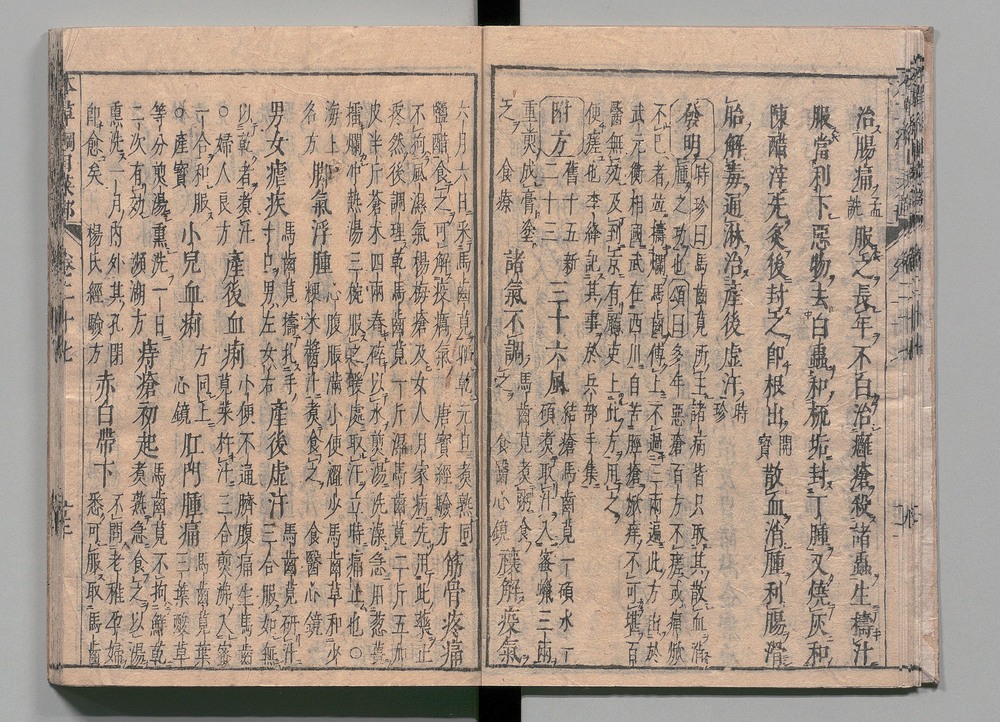 治腸痛孟詵服之長年不白治癰瘡殺諸蟲生擣汁
服當利下惡物去白蟲和梳垢封丁腫又燒灰和
陳醋滓先灸後封之即根出開寶散血消腫利腸滑
胎解毒通淋治產後虛汗時珍
發明時珍曰馬齒莧所主諸病皆只取其散血消腫之功也頌曰多年惡瘡百方不瘥或焮痛
不已者並擣爛馬齒傅上不過三兩遍此方出於武元衡相國武在西川自苦脛瘡焮痒不可堪百
醫無效及到京有廳吏上此方用之便瘥也李絳記其事於兵部手集
附方舊十五新二十三三十六風結瘡馬齒莧一碩水一碩煮取汁入蜜蠟三兩
重煎成膏塗之食療諸氣不調馬齒莧煮粥食之食醫心鏡禳解疫氣
六月六日采馬齒莧晒乾元旦煮熟同鹽醋食之可解疫癘氣唐瑤經驗方筋骨疼痛
不拘風濕氣楊梅瘡及女人月家病先用此藥止疼然後調理乾馬齒莧一斤濕馬齒莧二斤五加
皮半斤蒼术四兩舂碎以水煎湯洗澡急用葱薑擂爛冲熱湯三碗服之暖處取汗立時痛止也○
海上名方脚氣浮腫心腹脹滿小便澀少馬齒草和少粳米醬汁煮食之食醫心鏡
男女瘧疾馬齒莧擣扎手寸口男左女右產後虛汗馬齒莧研汁三合服如無
以乾者煮汁○婦人良方產後血痢小便不通臍腹痛生馬齒莧菜杵汁三合煎沸入蜜
一合和服○產寶小兒血痢方同上心鏡肛門腫痛馬齒莧葉三葉酸草
等分煎湯熏洗一日二次有效瀕湖方痔瘡初起馬齒莧不拘鮮乾煮熟急食之以湯
熏洗一月內外其孔閉即愈矣楊氏經驗方赤白帶下不問老稚孕婦悉可服取馬齒
本草綱目菜部 卷二十七